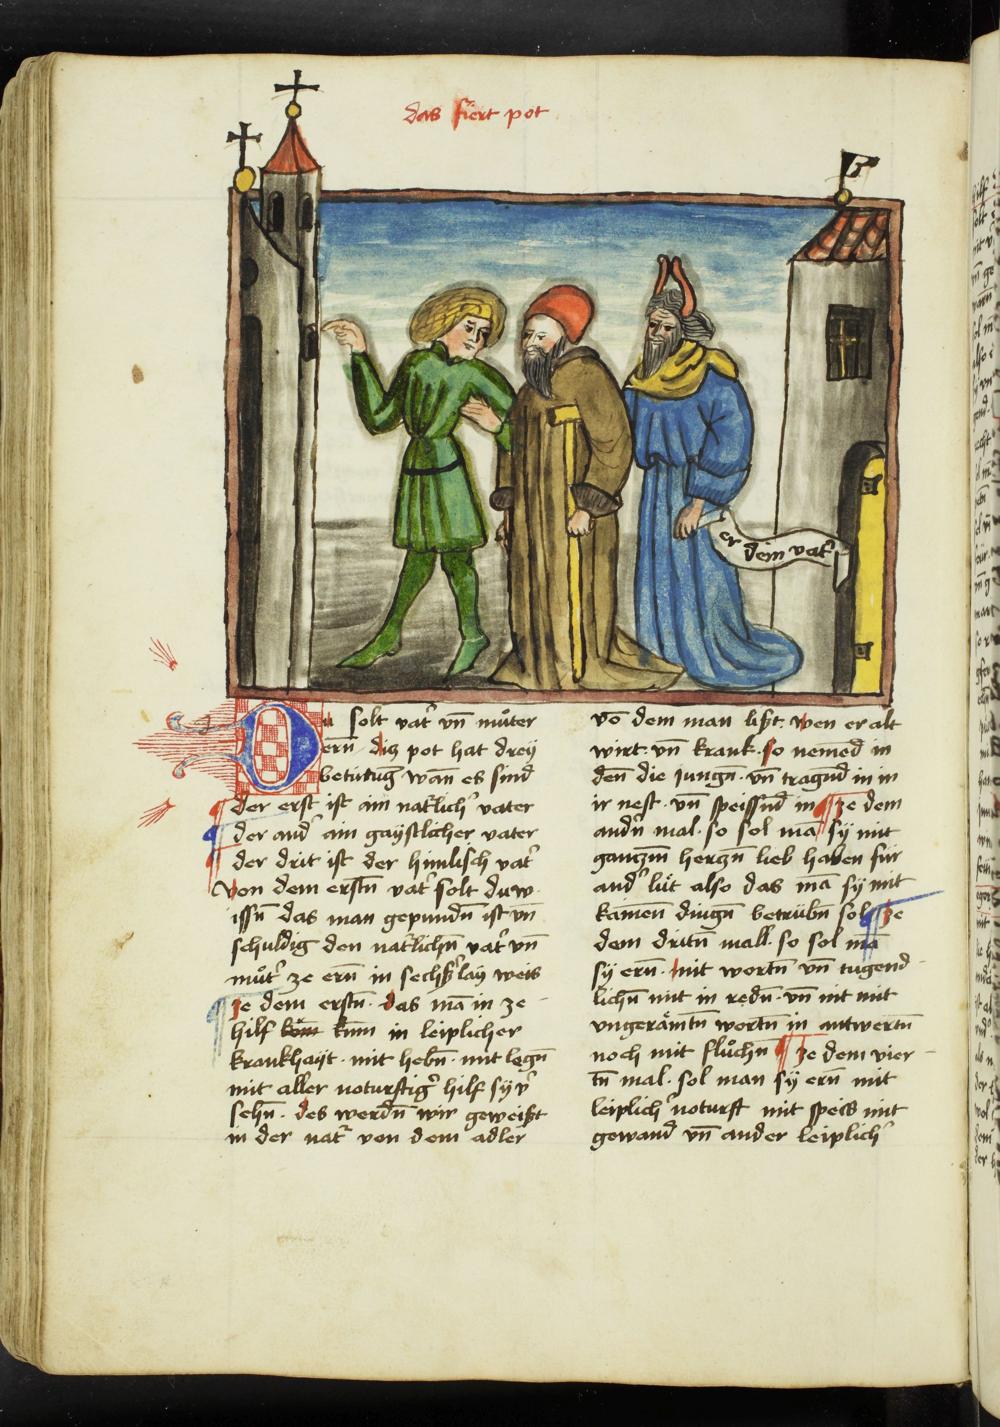 das fiert pot
er dein vat̛
Du solt vat̛ vn̄ můter
ern̄ · dis pot hat dreÿ
betutuḡ wan es sind
der erst ist ain natlich̛ vater
der and̛ ain gaÿstlicher vater
der drit ist der himlisch vat̛
Von dem erstn̄ vat̛ solt du w
issn̄ das man gepundn̄ ist vn̄
schuldig den natlichn̄ vat̛ vn̄
můt̛ ze ern̄ in sechs̛laÿ weis
ze dem erstn̄ · das mā in ze
hilf kum in leiplicher
krankhaÿt · mit hebn̄ · mit legn̄
mit aller noturftig̛ hilf sÿ v̛
sehn̄ · des werdn̄ wir geweißt
in der nat̛ von dem adler
vō dem man lißt · wen er alt
wirt · vn̄ krank · so nemed in
den̄ die jungn̄ · vn̄ tragnd in in
ir nest · vn̄ speissnd in ze dem
andn̄ mal · so sol mā sÿ mit
ganczm̄ herczn̄ lieb haben für
and̛ lüt also das mā sÿ mit
kainen dingn̄ betrübn̄ sol ze
dem dritn̄ mall · so sol mā
sÿ ern̄ · mit wortn̄ vn̄ tugend
lichn̄ mit in redn̄ · vn̄ nit mit
vngerämtn̄ wortn̄ in antwertn̄
noch mit flůchn̄ ze dem vier
tn̄ mal · sol man sÿ ern̄ mit
leiplich̛ noturft mit speis mit
gewand vn̄ ander leiplich̛